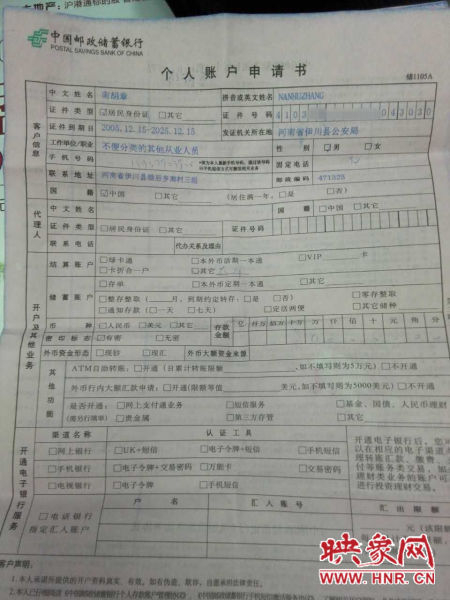 中国邮政储蓄银行
POSTAL SAVINGS BANK OF CHINA
个人账户申请书
储1105A
客户信息
中文姓名 南胡章 拼音或英文姓名 NANHUZHANG
证件类型 ☑居民身份证 □其它 证件号码 4103 043030
证件到期日 2005.12.15-2025.12.15 发证机关所在地 河南省伊川县公安局
工作单位/职业 不便分类的其他从业人员 性别 ☑男 □女
手机号码 固定电话
联系地址 邮政编码 471325
国籍 ☑中国 □其它 (居住满一年,□是 □否)
代理人
中文姓名 国籍 □中国 □其它
证件类型 □居民身份证 □其它 证件号码
联系电话 代办关系及理由
开户及其他业务
结算账户 □绿卡通 □本外币活期一本通 □VIP 卡
□卡折合一户 □其它
储蓄账户 □存单 □本外币定期一本通
□整存整取(____月,到期约定转存:□是 □否) □零存整取
□通知存款(□一天 □七天) □定活两便 □其它储种
币种 □人民币 □美元 □其它 存款金额 亿 仟万 佰万 十万 万 仟 佰 十 元 角 分
密印标志 ☑有密 □无密
外币资金形态 □现钞 □现汇 外币大额资金来源
其他功能
ATM自助转账:□开通(日累计转账限额 ,如不填写则为5万元)□不开通
外币行内大额汇款申请:□开通(限额等值 美元,如不填写则为5000美元)□不开通
是否开通:□网上支付通业务 □短信服务 □基金、国债、人民币理财
(需另行填单) □贵金属 □第三方存管 □其它
开通电子银行服务
渠道名称 认证工具
□网上银行 □UK+短信 □电子令牌+短信 □手机短信
□手机银行 □电子令牌+交易密码 □万能卡 □交易密码
□电视银行 □电子令牌 □手机短信
开通电子银行后,您
以在相应的电子渠道
理转账汇款、缴费
付等账务类交易,如
理财类业务的账户可
进行投资理财交易。
□电话银行
指定汇入账户
户名 汇入账号 汇出限额
客户声明:
1.本人承诺所提供的开户资料真实、有效,如有伪造、欺诈,自愿承担法律责任。
映象网
WWW.HNR.CN